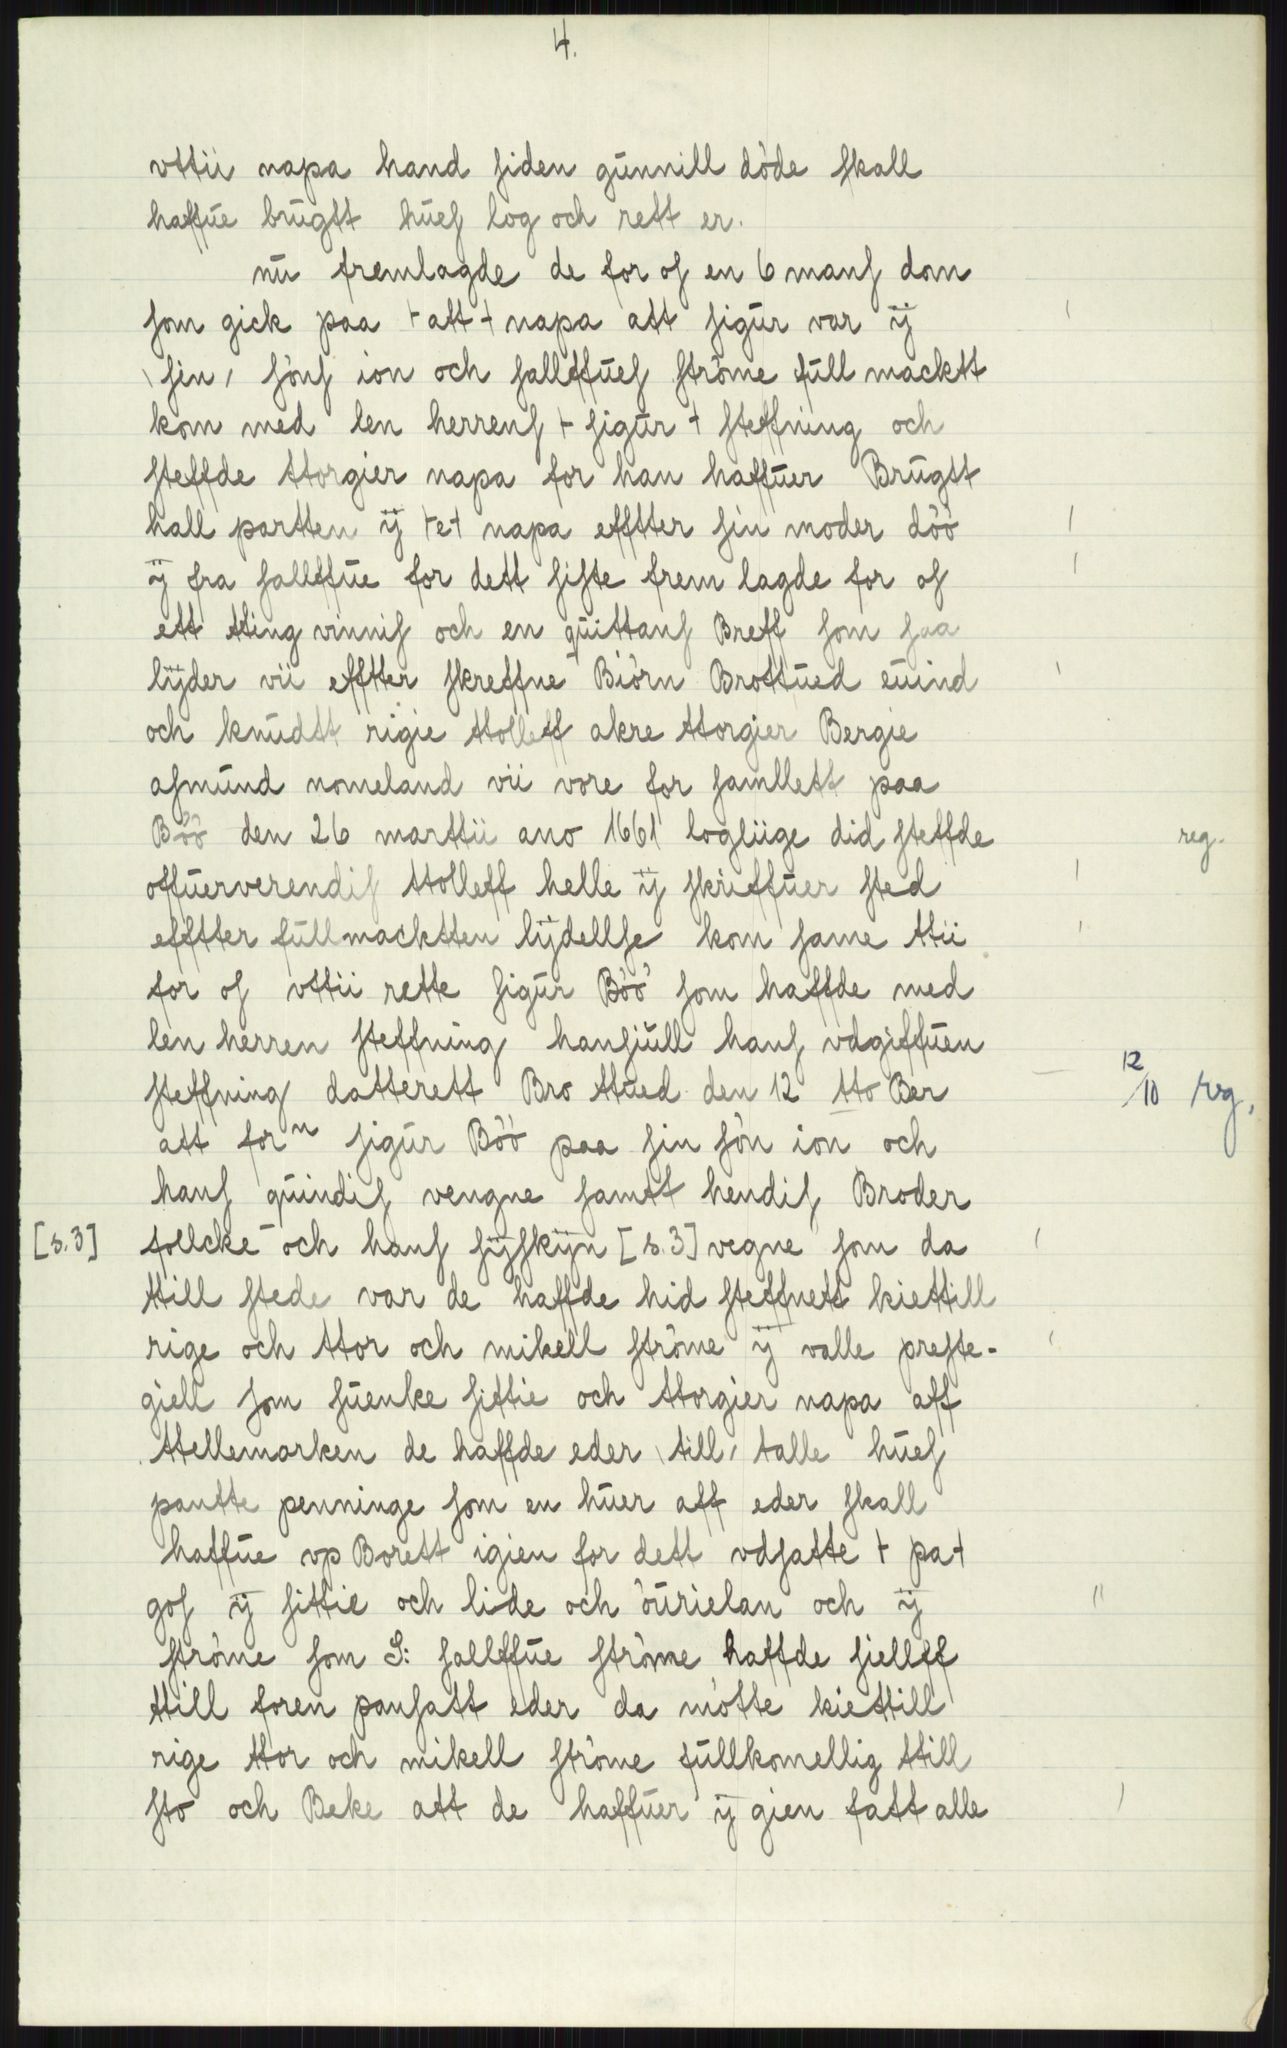 4.
vttii napa hand siden gunnill döde skall
haffue brugtt hues log och rett er.
nu fremlagde de for os en 6 mans dom
som gick paa ⊢att⊣ napa att sigur var ÿ
\sin/ söns ion och sallffues ströme full macktt
kom med len herrens ⊢sigur⊣ steffning och
steffde ttorgier napa for han haffuer Brugtt
hall partten ÿ ⊢et⊣ napa efftter sin moder döö
ÿ fra sallffue for dett siste frem lagde for os
ett tting vinnis och en quittans Breff som saa
lÿder vii efftter skreffne Biörn Brottued euind
och knudtt rigie ttolleff akre ttorgier Bergie
asmund nomeland vii vore for samllett paa
Böö den 26 marttii ano 1661 logliige did steffde reg.
offuerverendis ttolleff helle ÿ skriffuer sted
efftter fullmacktten lÿdellse kom same ttii
for os vttii rette sigur Böö som haffde med
len herren steffning hansiull hans vdgiffuen
steffning datterett Bro ttued den 12 tto Ber 12/10 reg.
att forn sigur Böö paa sin sön ion och
hans quindis vengne samtt hendis Broder
[s.3] follcke och hans sÿskÿn [s.3] vegne som da
ttill stede var de haffde hid steffnett kiettill
rige och ttor och mikell ströme ÿ valle preste-
giell som suenke sittie och ttorgier napa aff
ttellemarken de haffde eder \till/ talle hues
pantte penninge som en huer aff eder skall
haffue vp Borett igien for dett vdsatte ⊢pa⊣
gos ÿ sittie och lide och öurielan och ÿ
ströme som S: sallffue ströme haffde siellff
ttill foren pansatt eder da mötte kiettill
rige ttor och mikell ströme fullkomellig ttill
sto och Beke att de haffuer ÿ gien fatt alle